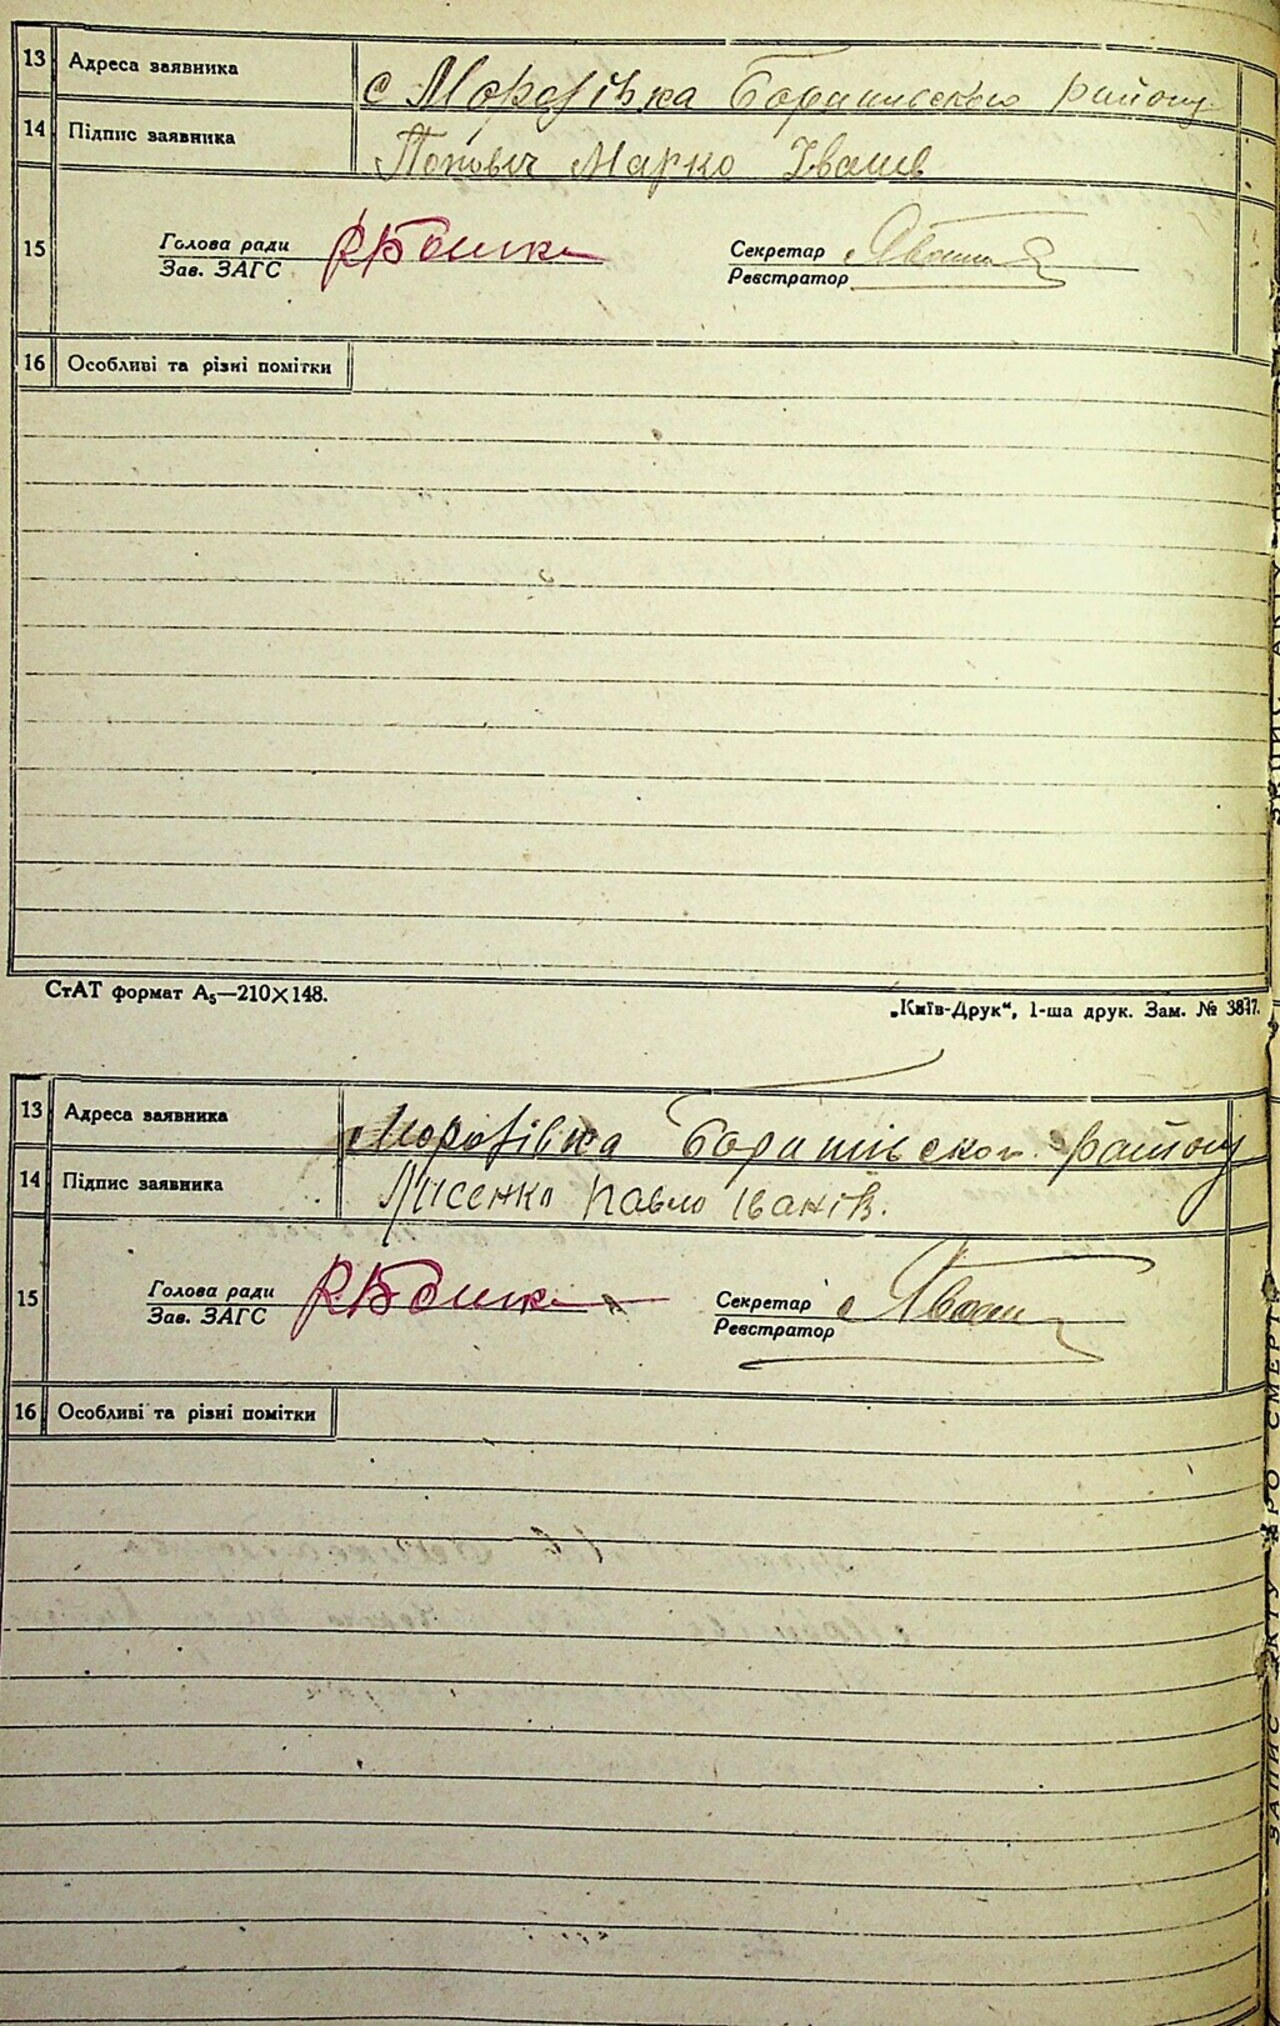 13 Адреса заявника с Морозівка Баришевского району
14 Підпис заявника Попович Марко Іванів
15 Голова ради Секретар
Зав. ЗАГС Реєстратор
16 Особливі та різні помітки
СтАТ формат А5—210×148. „Київ-Друк“, 1-ша друк. Зам. № 3877.
13 Адреса заявника Морозівка району
14 Підпис заявника Лисенко Павло Іванів.
15 Голова ради Секретар
Зав. ЗАГС Реєстратор
16 Особливі та різні помітки
ЗАПИС АКТУ ПРО СМЕРТЬ